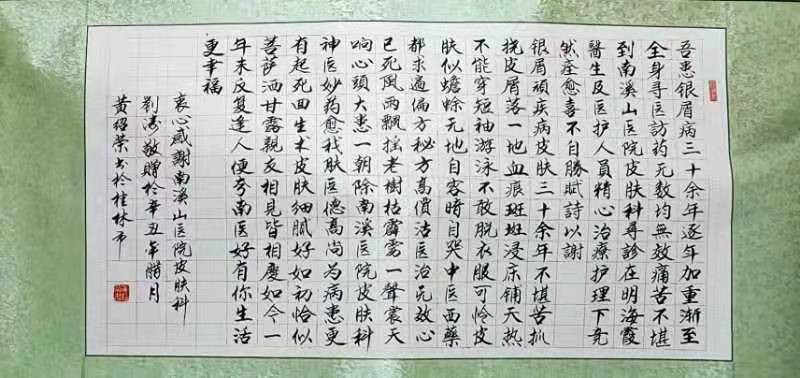 吾患银屑病三十余年逐年加重渐至
全身寻医訪药无数均無效痛苦不堪
到南溪山医院皮肤科尋診在明海霞
醫生及医护人員精心治療护理下竟
然痊愈喜不自勝賦詩以謝
銀屑頑疾病皮膚三十余年不堪苦抓
挠皮屑落一地血痕斑斑浸床铺天熱
不能穿短袖游泳不敢脱衣服可怜皮
肤似蟾蜍无地自容暗自哭中医西藥
都求遍偏方秘方高價沽医治无效心
已死風雨飘摇老樹枯霹雳一聲震天
响心頭大患一朝除南溪医院皮肤科
神医妙药愈我肤医德高尚为病患更
有起死回生术皮肤细腻好如初恰似
菩萨洒甘露親友相見皆相慶如今一
年未反复逢人便夸南医好有你生活
更幸福
衷心感謝南溪山医院皮肤科
劉涛敬贈於辛丑年腊月
黄绍荣书於桂林市